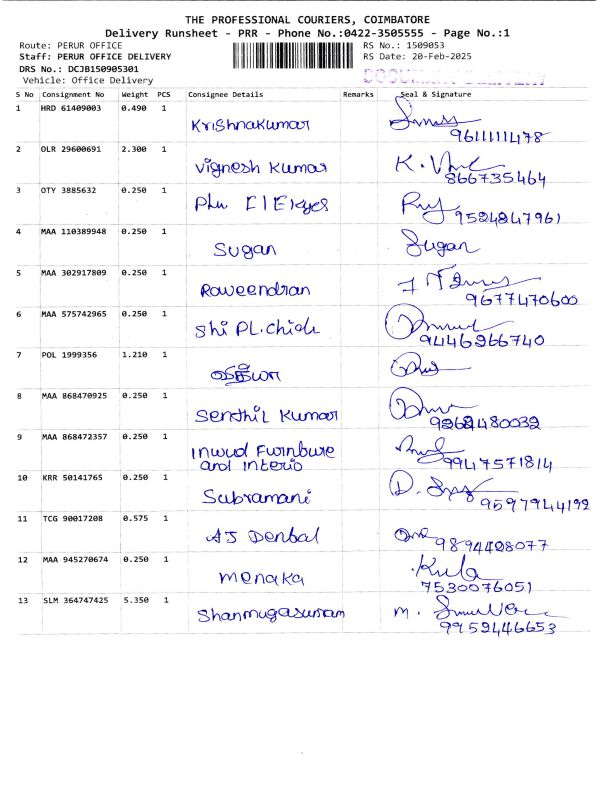 THE PROFESSIONAL COURIERS, COIMBATORE
Delivery Runsheet - PRR - Phone No.:0422-3505555 - Page No.:1
Route: PERUR OFFICE RS No.: 1509053
Staff: PERUR OFFICE DELIVERY RS Date: 20-Feb-2025
DRS No.: DCJB150905301
Vehicle: Office Delivery
S No Consignment No Weight PCS Consignee Details Remarks Seal & Signature
1 HRD 61409003 0.490 1
Krishnakumar 9611111478
2 OLR 29600691 2.300 1
Vignesh Kumar K. 866735464
3 OTY 3885632 0.250 1
9524247961
4 MAA 110389948 0.250 1
Sugan Sugan
5 MAA 302917809 0.250 1
Raveendran 9677470600
6 MAA 575742965 0.250 1
Shi PL.Chich 9446266740
7 POL 1999356 1.210 1
8 MAA 868470925 0.250 1
Senthil Kumar
9 MAA 868472357 0.250 1
Inwud Furnbure 9947571814
and Interio
10 KRR 50141765 0.250 1
Subramani D. 9597944192
11 TCG 90017208 0.575 1
AJ Denbal 9894428077
12 MAA 945270674 0.250 1
Menaka 7530076051
13 SLM 364747425 5.350 1
Shanmugasuman M. 9952446653